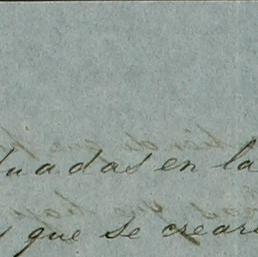 uadas en la
que se crear